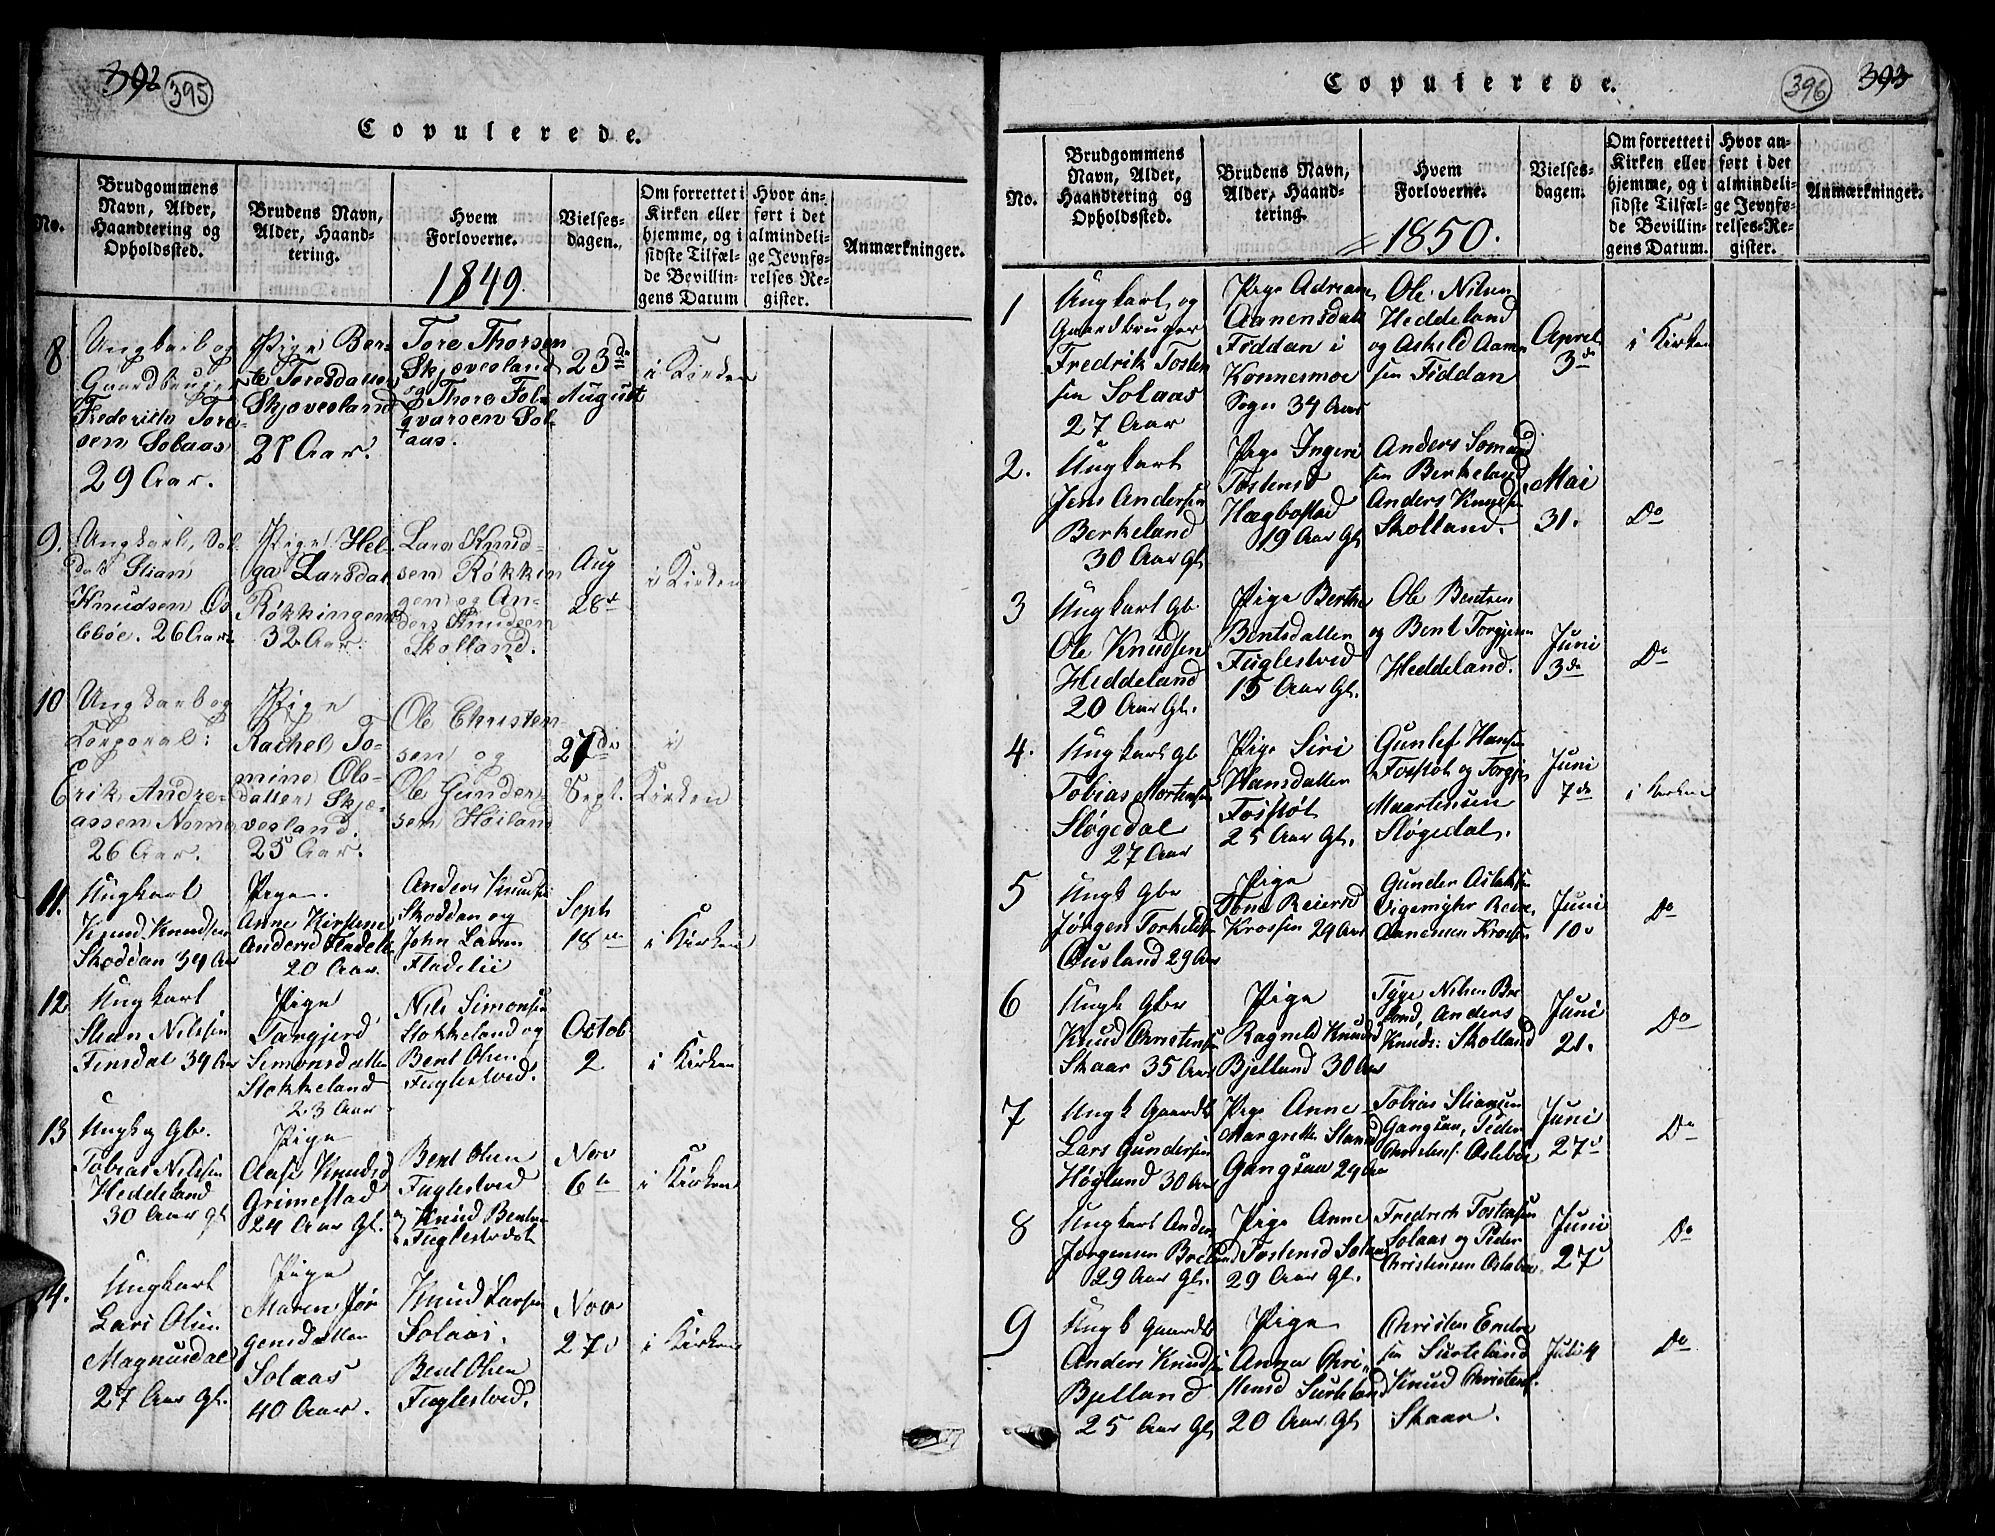 392 395
Copulerede.
No.
Brudgommens
Navn, Alder,
Haandtering og
Opholdssted.
Brudens Navn,
Alder, Haand-
tering.
Hvem
Forloverne.
1849.
Vielses-
dagen.
Om forrettet i
Kirken eller
hjemme, og i
sidste Tilfæl-
de Bevillin-
gens Datum
Hvor an-
ført i det
almindeli-
ge Jevnfø-
relses-Re-
gister.
Anmærkninger.
8
Ungkarl og
Gaardbruger
Frederik Tore-
sen Solaas
29 Aar.
Pige Ber-
te Toresdatter
Skjævesland
Aar.
Tore Thorsen
Skjævesland
og Thore Fol-
qvarsen Sol-
aas.
23de
August
i Kirken
9.
Ungkarl, Sol-
dat Stian
Knudsen Os
lebøe. 26 Aar
Pige Hel-
ga Larsdat
Røkkingen
32 Aar.
Lars Knud-
sen Røkkin
gen og An-
ders Knudsen
Skolland.
Aug
28de
i Kirken
10
Ungkarl og
Corporal:
Erik Andre-
assen Nome
26 Aar.
Pige
Rachel To-
mine Ols-
datter Skjæ-
vesland.
25 Aar.
Ole Christen-
sen og
Ole Gunder-
sen Høiland
27de
Sept.
i
Kirken
11.
Ungkarl
Knud Knudsen
Skoddan 34 Aar
Pige
Anne Kirstine
Andersd Fladelii
20 Aar.
Anders Knudsen
Skoddan og
John Larsen
Fladelii
Septb
18de
i Kirken
12
Ungkarl
Stian Nilssen
Finsdal 39 Aar
Pige
Targjerd
Simonsdatter
Stokkeland
23 Aar
Nils Simonsen
Stokkeland og
Bent Olsen
Fuglestved.
Octob
2
i Kirken
13
Ungk og Gbr.
Tobias Nilssen
Heddeland
30 Aar Gl
Pige
Aase Knudsd
Grimestad
24 Aar Gl.
Bent Olsen
Fuglestved
og Knud Bentsen
Fuglestvedt
Nov
6te
i Kirken
14.
Ungkarl
Lars Olsen
Magnusdal
27 Aar Gl.
Pige
Maren Jør
gensdatter
Solaas
40 Aar.
Knud Larsen
Solaas.
Bent Olsen
Fuglestved.
Nov
27d
i Kirken
Copulerede.
396 393
No.
Brudgommens
Navn, Alder,
Haandtering og
Opholdssted.
Brudens Navn,
Alder, Haand-
tering.
Hvem
Forloverne.
1850.
Vielses-
dagen.
Om forrettet i
Kirken eller
hjemme, og i
sidste Tilfæl-
de Bevillin-
gens Datum.
Hvor an-
ført i det
almindeli-
ge Jevnfø-
relses-Re-
gister.
Anmærkninger.
1
Ungkarl og
Gaardbruger
Fredrik Tosten
sen Solaas
27 Aar
Pige Adriane
Aanensdatt
Fiddan i
Konnesmoe
Sogn 34 Aar
Ole Nilsen
Heddeland
og Askild Aanen
sen Fiddan
April
3de
i Kirken
2.
Ungkarl
Jens Andersen
Berkeland
30 Aar Gl
Pige Ingeri
Tostensd
Hægbostad
19 Aar Gl
Anders Somund
sen Berkeland
Anders Knudsen
Skolland.
Mai
31.
Do
3
Ungkarl Gb
Ole Knudsen
Heddeland
20 Aar Gl.
Pige Berthe
Bentsdatter
Fuglestved
15 Aar Gl.
Ole Bentsen
og Bent Torgjersen
Heddeland.
Juni
3de
Do
4.
Ungkarl Gb
Tobias Mortensen
Sløgedal
27 Aar
Pige Siri
Hansdatter
Fosstøl
25 Aar Gl.
Gunlef Hansen
Fosstøl og Torgjus
Maartensen
Sløgedal.
Juni
7de
i Kirken
5
Ungk Gbr
Jørgen Torkelsen
Ousland 29 Aar
Pige
Tone Reiersd
Krossen 29 Aar
Gunder Aslaksen
Vigemyhr Reier
Aanensen Krossen
Juni
10d
Do
6
Ungk Gbr
Knud Christensen
Skaar 35 Aar
Pige
Ragnild Knudsd
Bjelland 30 Aar
Tyge Nilsen Bre
land, Anders
Knuds: Skolland
Juni
21.
Do
7
Ungk Gaardb
Lars Gundersen
Høgland 30 Aar
Pige Anne
Margrethe Stiansd
Gangsaa 29 Aar
Tobias Stiansen
Gangsaa, Peder
Christens: Oslebøe
Juni
27d
Do
8
Ungkarl Anders
Jørgensen Breland
29 Aar Gl.
Pige Anne
Tostensd Solaas
29 Aar Gl.
Fredrich Tostensen
Solaas og Peder
Christensen Oslebøe
Juni
27d
Do
9
Ungk Gaardb
Anders Knudsen
Bjelland
25 Aar Gl
Pige
Anna Chri-
stensd Surteland
20 Aar Gl
Christen Endre
sen Surteland
Knud Christens.
Skaar.
Juli 4
Do